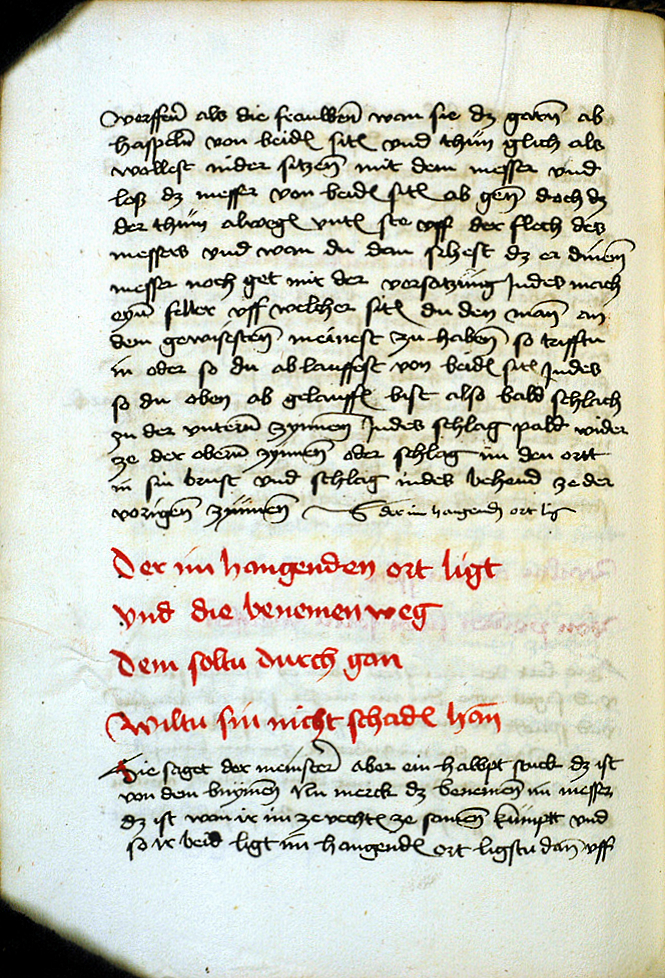 werffen̄ als die frauwen̄ wan sie dz garn̄ ab
haspeln̄ von beidē sitē vnd thůn glich als
woltest nider sitzen̄ mit dem messer vnd
loß dz messer von beidē sitē ab gen̄ doch dz
der thům alwegē vntē ste vff der flech des
messers vnd wan du dan sihest dz er dinem̄
messer noch get mit der versatzu̇ng Jndes mach
eyn̄ feler vff welcher sitē du den man̄ an
dem gewisisten̄ meinest zu haben̄ so trifftu
in oder so du ab lauffest von beidē sitē Jndes
so du oben ab gelauffē bist also bald schlach
zu der vntern̄ zynnen̄ Jndes schlag pald wider
ze der obern̄ zynnen̄ oder schlag im den ortt
in sin brust vnd schlag indes behend ze der
vorigen̄ zynnen̄ der im hangenden ort lig
Der im hangenden ort ligt
vnd die benemen weg
Dem soltu durch gan
Wiltu sin nicht schadē han̄
Hie saget der meinster̄ aber ein halbpt stuck dz ist
von dem bnymen Nu merck dz benemen im messer
dz ist wan ir im ze vechtē ze samen̄ kůmptt vnd
so ir beid ligt im hangendē ort ligstu dan̄ vff